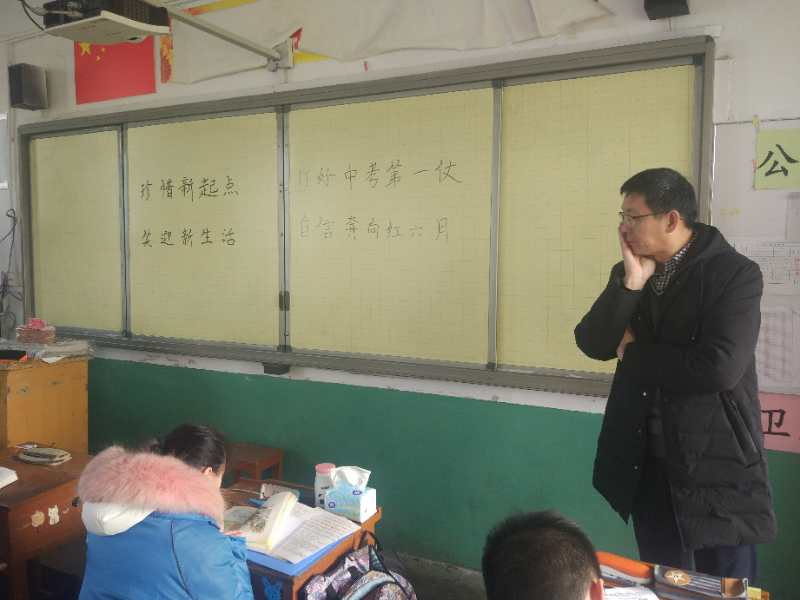 珍惜新起点
笑迎新生活
打好中考第一仗
自信奔向红六月
公
卫